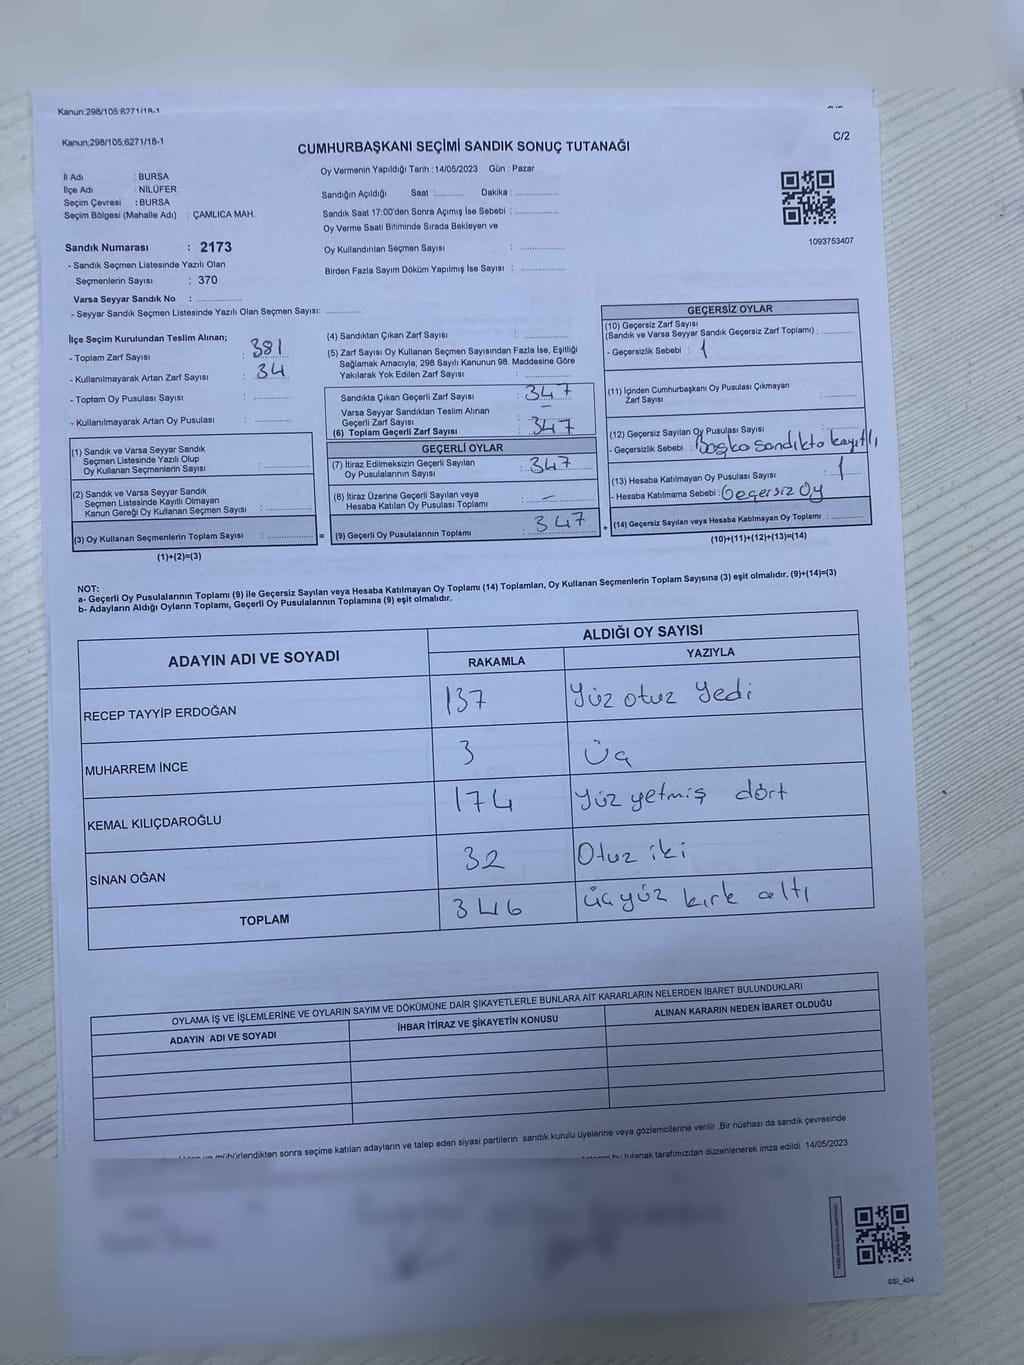 Kanun:298/105;6271/18-1
Kanun:298/105;6271/18-1
C/2
CUMHURBAŞKANI SEÇİMİ SANDIK SONUÇ TUTANAĞI
İl Adı : BURSA
İlçe Adı : NİLÜFER
Seçim Çevresi : BURSA
Seçim Bölgesi (Mahalle Adı) : ÇAMLICA MAH.
Oy Vermenin Yapıldığı Tarih : 14/05/2023 Gün : Pazar
Sandığın Açıldığı Saat :.......... Dakika : ................
Sandık Saat 17:00'den Sonra Açımış İse Sebebi : ................
Oy Verme Saati Bitiminde Sırada Bekleyen ve
Oy Kullandırılan Seçmen Sayısı : ................
Birden Fazla Sayım Döküm Yapılmış İse Sayısı : ................
1093753407
Sandık Numarası : 2173
- Sandık Seçmen Listesinde Yazılı Olan
Seçmenlerin Sayısı : 370
Varsa Seyyar Sandık No : ................
- Seyyar Sandık Seçmen Listesinde Yazılı Olan Seçmen Sayısı: ............
İlçe Seçim Kurulundan Teslim Alınan;
- Toplam Zarf Sayısı : 381
- Kullanılmayarak Artan Zarf Sayısı : 34
- Toplam Oy Pusulası Sayısı : ............
- Kullanılmayarak Artan Oy Pusulası : ............
(1) Sandık ve Varsa Seyyar Sandık
Seçmen Listesinde Yazılı Olup
Oy Kullanan Seçmenlerin Sayısı : ................
(2) Sandık ve Varsa Seyyar Sandık
Seçmen Listesinde Kayıtlı Olmayan
Kanun Gereği Oy Kullanan Seçmen Sayısı : ................
(3) Oy Kullanan Seçmenlerin Toplam Sayısı : ................ =
(1)+(2)=(3)
(4) Sandıktan Çıkan Zarf Sayısı : ................
(5) Zarf Sayısı Oy Kullanan Seçmen Sayısından Fazla İse, Eşitliği
Sağlamak Amacıyla; 298 Sayılı Kanunun 98. Maddesine Göre
Yakılarak Yok Edilen Zarf Sayısı : ................
Sandıkta Çıkan Geçerli Zarf Sayısı : 347
Varsa Seyyar Sandıktan Teslim Alınan
Geçerli Zarf Sayısı : –
(6) Toplam Geçerli Zarf Sayısı : 347
GEÇERLİ OYLAR
(7) İtiraz Edilmeksizin Geçerli Sayılan
Oy Pusulalarının Sayısı : 347
(8) İtiraz Üzerine Geçerli Sayılan veya
Hesaba Katılan Oy Pusulası Toplamı : –
(9) Geçerli Oy Pusulalarının Toplamı : 347 +
GEÇERSİZ OYLAR
(10) Geçersiz Zarf Sayısı
(Sandık ve Varsa Seyyar Sandık Geçersiz Zarf Toplamı) : ............
- Geçersizlik Sebebi : 1
(11) İçinden Cumhurbaşkanı Oy Pusulası Çıkmayan
Zarf Sayısı : ............
(12) Geçersiz Sayılan Oy Pusulası Sayısı : ............
- Geçersizlik Sebebi : Başka sandıkta kayıtlı
(13) Hesaba Katılmayan Oy Pusulası Sayısı : 1
- Hesaba Katılmama Sebebi : Geçersiz Oy
(14) Geçersiz Sayılan veya Hesaba Katılmayan Oy Toplamı : ............
(10)+(11)+(12)+(13)=(14)
NOT:
a- Geçerli Oy Pusulalarının Toplamı (9) ile Geçersiz Sayılan veya Hesaba Katılmayan Oy Toplamı (14) Toplamları, Oy Kullanan Seçmenlerin Toplam Sayısına (3) eşit olmalıdır. (9)+(14)=(3)
b- Adayların Aldığı Oyların Toplamı, Geçerli Oy Pusulalarının Toplamına (9) eşit olmalıdır.
ADAYIN ADI VE SOYADI
ALDIĞI OY SAYISI
RAKAMLA YAZIYLA
RECEP TAYYİP ERDOĞAN 137 Yüz otuz yedi
MUHARREM İNCE 3 Üç
KEMAL KILIÇDAROĞLU 174 Yüz yetmiş dört
SİNAN OĞAN 32 Otuz iki
TOPLAM 346 üçyüz kırk altı
OYLAMA İŞ VE İŞLEMLERİNE VE OYLARIN SAYIM VE DÖKÜMÜNE DAİR ŞİKAYETLERLE BUNLARA AİT KARARLARIN NELERDEN İBARET BULUNDUKLARI
ADAYIN ADI VE SOYADI İHBAR İTİRAZ VE ŞİKAYETİN KONUSU ALINAN KARARIN NEDEN İBARET OLDUĞU
mühürlendikten sonra seçime katılan adayların ve talep eden siyasi partilerin sandık kurulu üyelerine veya gözlemcilerine verilir .Bir nüshası da sandık çevresinde
bu tutanak tarafımızdan düzenlenerek imza edildi. 14/05/2023
SSI_404